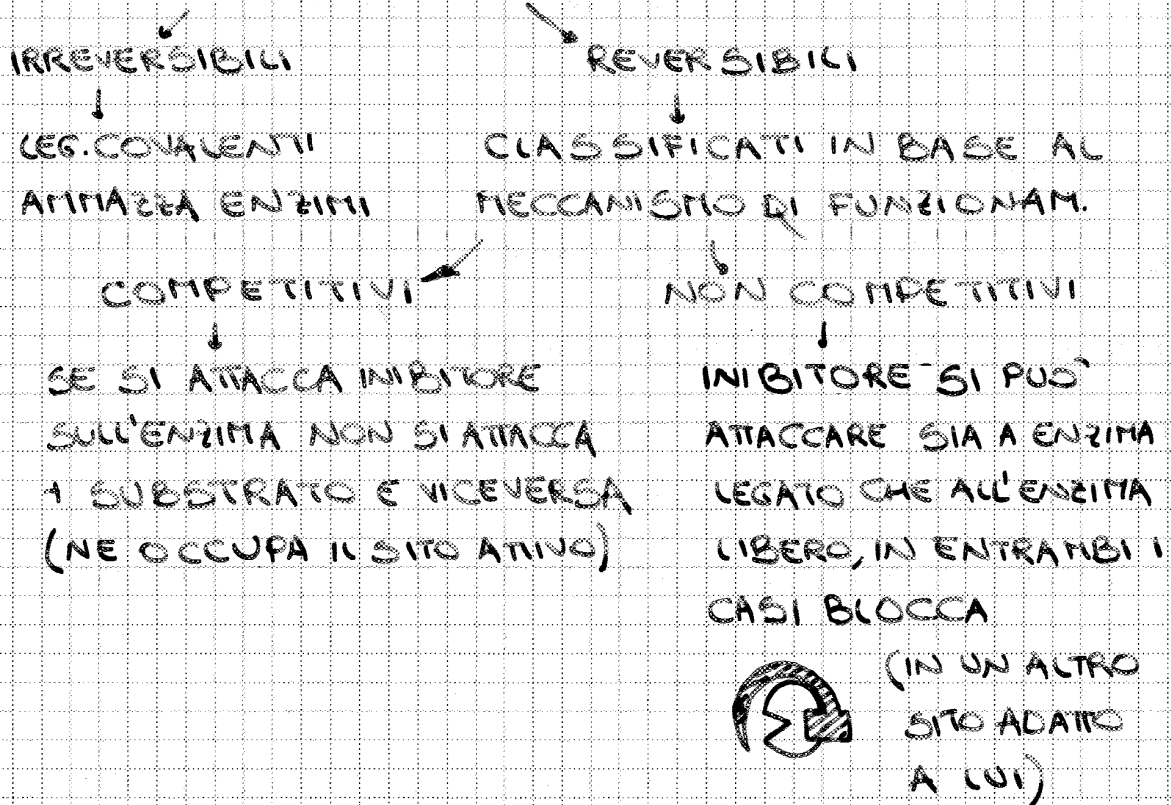 IRREVERSIBILI
REVERSIBILI
LEG. COVALENTI
AMMAZZA ENZIMI
CLASSIFICATI IN BASE AL
MECCANISMO DI FUNZIONAM.
COMPETITIVI
NON COMPETITIVI
SE SI ATTACCA INIBITORE
SULL'ENZIMA NON SI ATTACCA
1 SUBSTRATO E VICEVERSA
(NE OCCUPA IL SITO ATTIVO)
INIBITORE SI PUO'
ATTACCARE SIA A ENZIMA
LEGATO CHE ALL'ENZIMA
LIBERO, IN ENTRAMBI I
CASI BLOCCA
(IN UN ALTRO
SITO ADATTO
A LUI)